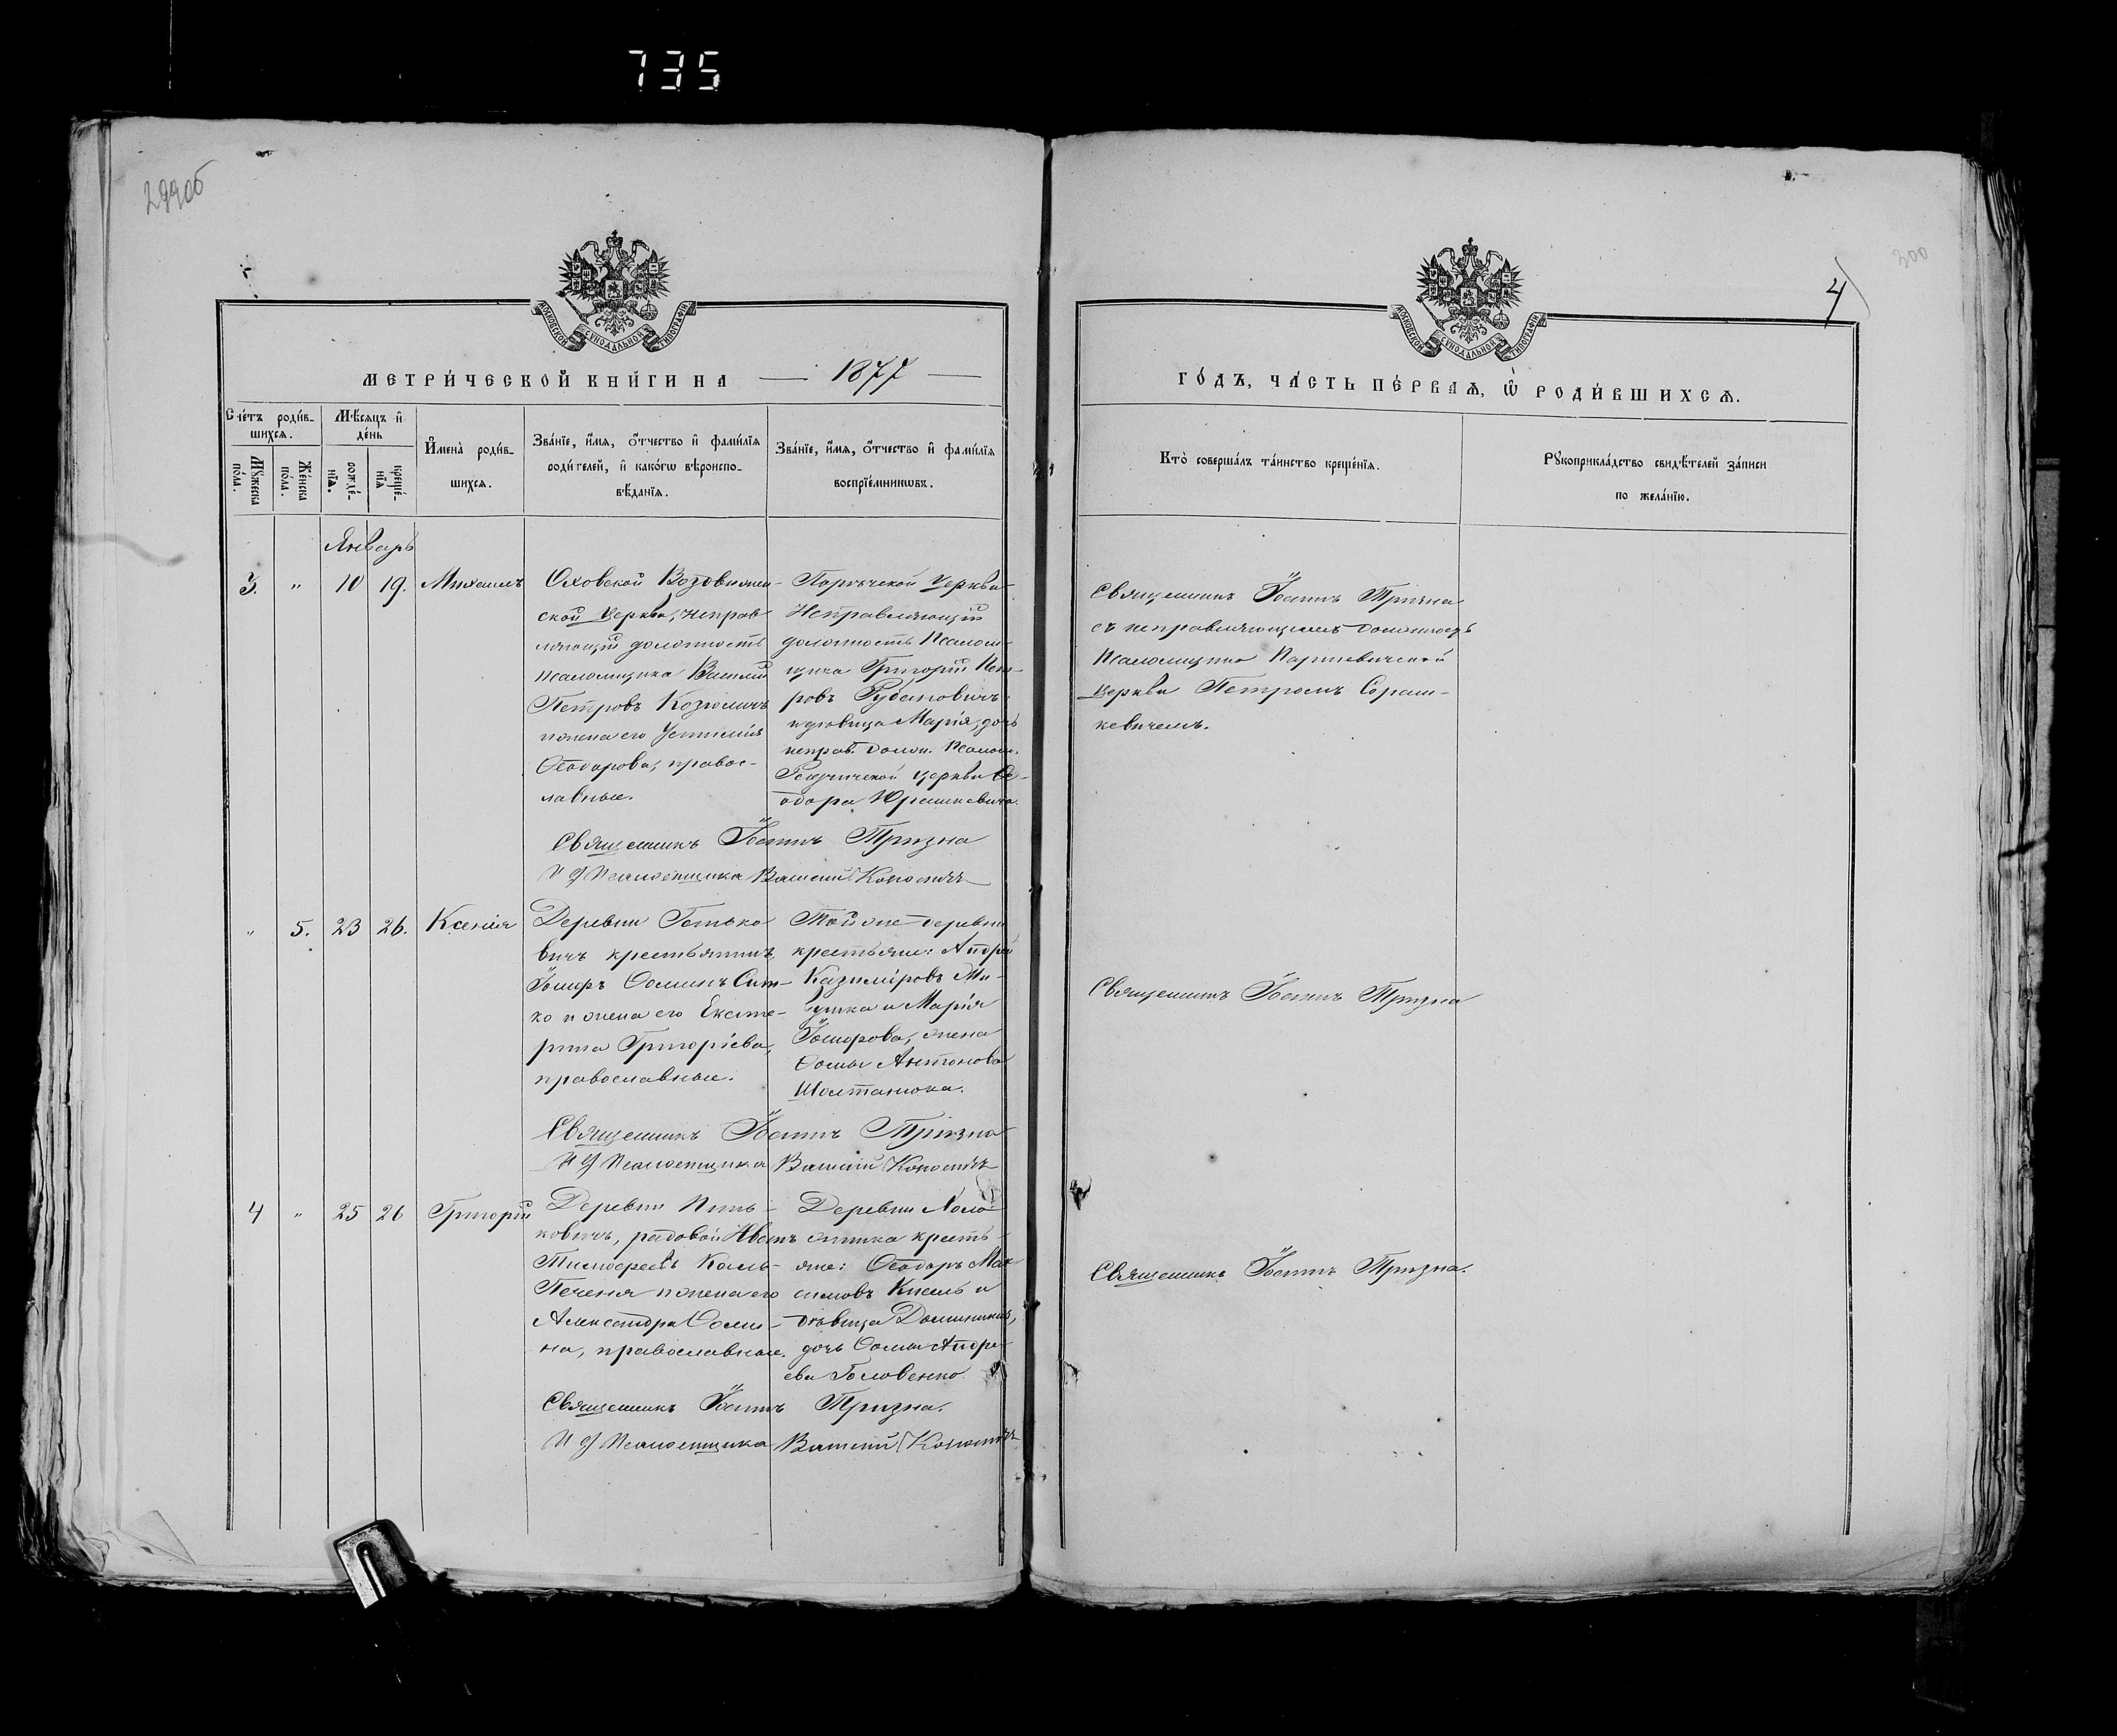 735
299об
300
4
МОСКОВСКОЙ СѴНОДАЛЬНОЙ ТИПОГРАФІИ
МЕТРИ́ЧЕСКОЙ КНИ́ГИ НА — 1877 —
Сче́тъ роди́в-
шихсѧ.
Мꙋ́жеска по́ла.
Же́нска по́ла.
Мѣ́сѧцъ и҆
де́нь
рожде́-
нїѧ.
креще́-
нїѧ
И҆мена̀ роди́в-
шихсѧ.
Зва́нїе, и҆́мѧ, ѻ҆́тчество и҆ фами́лїѧ
роди́телей, и҆ како́гѡ вѣроиспо-
вѣ́данїѧ.
Зва́нїе, и҆́мѧ, ѻ҆́тчество и҆ фами́лїѧ
воспрїе́мникѡвъ.
Январь
3. " 10 19. Михаилъ
Оховской Воздвижен-
ской Церкви, исправ-
ляющій должность
псаломщика Василій
Петровъ
и жена его
Ѳеодорова, правос-
лавные.
Церкви
Исправляющій
должность Псалом-
щика Григорій Пет-
ровъ
и дѣвица Марія, дочь
исправ. долж. Псалом.
церкви Ѳе-
одора Юрашкевича.
Священникъ Іоаннъ Тризна
И д Псаломщика Василій
" 5. 23 26. Ксенія
Деревни Гонько
вичъ крестьянинъ
Ѳоминъ Сит-
ко и жена его Екате-
рина Григоріева,
православные.
Той же деревни
крестьяне: Андрей
Казиміровъ
и Марія
жена
Ѳомы Антонова
Священникъ Іоаннъ Тризна
И д Псаломщика Василій
4 " 25 26 Григорій
Деревни Пинь-
ковичъ, рядовой Иванъ
Печеня и жена его
Александра Ѳоми-
на, православные.
Деревни
кресть-
яне: Ѳеодоръ Мак-
симовъ Кисель и
дѣвица Доминикія,
дочь Ѳомы Андре-
ева Головенко
Священникъ Іоаннъ Тризна.
И д Псаломщика Василій
МОСКОВСКОЙ СѴНОДАЛЬНОЙ ТИПОГРАФІИ
ГО́ДЪ, ЧА́СТЬ ПЕ́РВАѦ, Ѽ РОДИ́ВШИХСѦ.
Кто̀ соверша́лъ та́инство креще́нїѧ.
Рꙋкоприкла́дство свидѣ́телей за́писи
по жела́нїю.
Священникъ Іоаннъ Тризна
съ исправляющимъ должность
Псаломщика
церкви Петромъ
Священникъ Іоаннъ Тризна
Священникъ Іоаннъ Тризна.